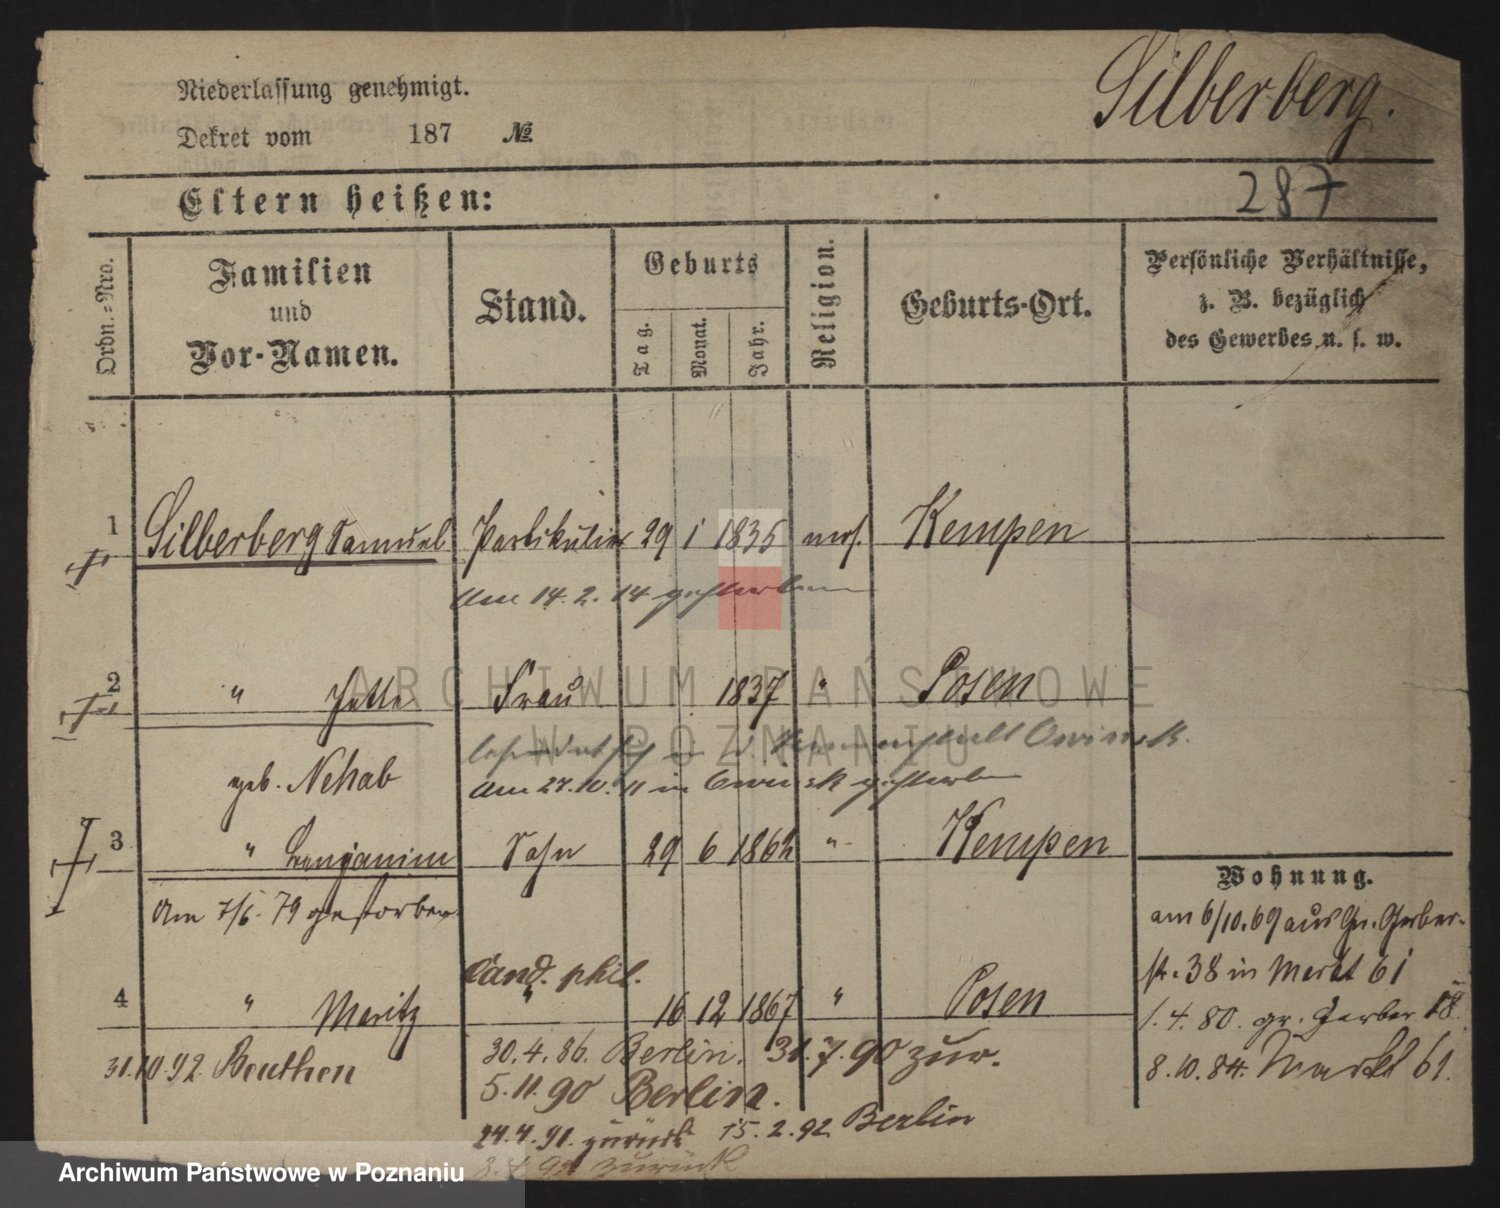 Niederlassung genehmigt.
Silberberg.
Dekret vom 187 №
Eltern heißen:
287
Ordn.=Nro.
Familien
und
Vor-Namen.
Stand.
Geburts
Tag.
Monat.
Jahr.
Religion.
Geburts-Ort.
Persönliche Verhältnisse,
z. B. bezüglich
des Gewerbes u. s. w.
1 Silberberg Samuel Partikulier 29 1 1835 mos. Kempen
Am 14.2.14 gestorben
2 " Jette Frau 1837 " Posen
in d. Irrenanstalt Owinsk.
geb. Nehab
Am 27.10.11 in Owinsk gestorben
3 " Benjamin Sohn 29 6 1864 " Kempen
Am 7/6. 79 gestorben
Wohnung.
am 6/10.69 aus Gr. Gerber-
str. 38 in Markt 61
1.4.80. gr. Gerber 18.
8.10.84. Markt 61.
Cand. phil.
4 " Moritz " 16 12 1867 " Posen
31.10.92 Beuthen
30.4.86. Berlin. 31.7.90 zur.
5.11.90 Berlin.
24.4.91. zurück 15.2.92 Berlin
92 zurück
ARCHIWUM PAŃSTWOWE
W POZNANIU
Archiwum Państwowe w Poznaniu